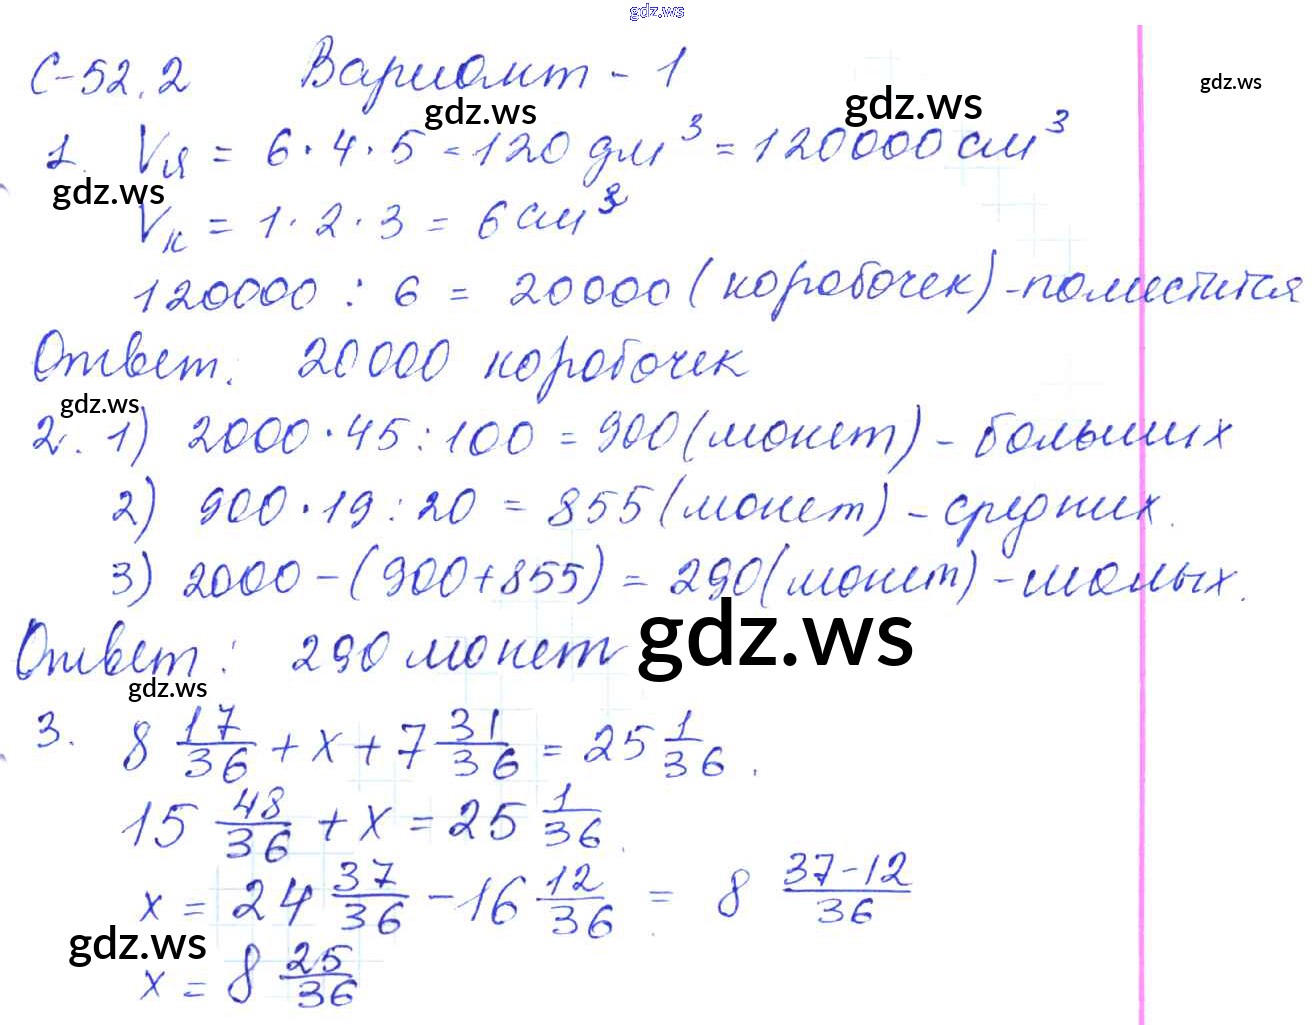 gdz.ws
С-52.2 Вариант - 1
gdz.ws gdz.ws gdz.ws
1. Vя = 6 · 4 · 5 = 120 дм³ = 120000 см³
gdz.ws
Vк = 1 · 2 · 3 = 6 см³
120000 : 6 = 20000 (коробочек) - поместится
Ответ: 20000 коробочек
gdz.ws
2. 1) 2000 · 45 : 100 = 900 (монет) - больших
2) 900 · 19 : 20 = 855 (монет) - средних.
3) 2000 - (900 + 855) = 290 (монет) - малых.
Ответ: 290 монет
gdz.ws
gdz.ws
3. 8 17/36 + x + 7 31/36 = 25 1/36.
15 48/36 + x = 25 1/36.
x = 24 37/36 - 16 12/36 = 8 37-12/36
gdz.ws
x = 8 25/36